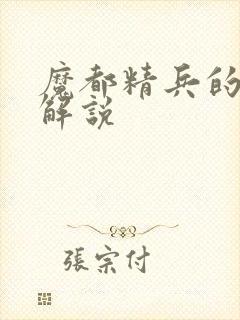 魔都精兵的
解說
張宗付